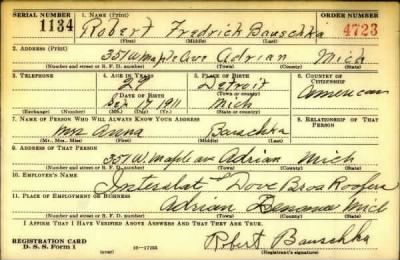 SERIAL NUMBER 1. NAME (Print) ORDER NUMBER
1134 Robert Fredrich Bauschka 4723
(First) (Middle) (Last)
2. ADDRESS (Print)
357 W Maple Ave Adrian Mich
(Number and street or R. F. D. number) (Town) (County) (State)
3. TELEPHONE 4. AGE IN YEARS 5. PLACE OF BIRTH 6. COUNTRY OF CITIZENSHIP
29 Detroit
DATE OF BIRTH (Town or county) American
Sep 17 1911 Mich
(Exchange) (Number) (Mo.) (Day) (Yr.) (State or country)
7. NAME OF PERSON WHO WILL ALWAYS KNOW YOUR ADDRESS 8. RELATIONSHIP OF THAT PERSON
Mrs Anna Bauschka
(Mr., Mrs., Miss) (First) (Middle) (Last)
9. ADDRESS OF THAT PERSON
357 W. Maple Ave Adrian Mich
(Number and street or R. F. D. number) (Town) (County) (State)
10. EMPLOYER'S NAME
Dove Bros Roofers
11. PLACE OF EMPLOYMENT OR BUSINESS
Adrian Mich
(Number and street or R. F. D. number) (Town) (County) (State)
I AFFIRM THAT I HAVE VERIFIED ABOVE ANSWERS AND THAT THEY ARE TRUE.
REGISTRATION CARD
D. S. S. Form 1 Robert Bauschka
(over) (Registrant's signature)